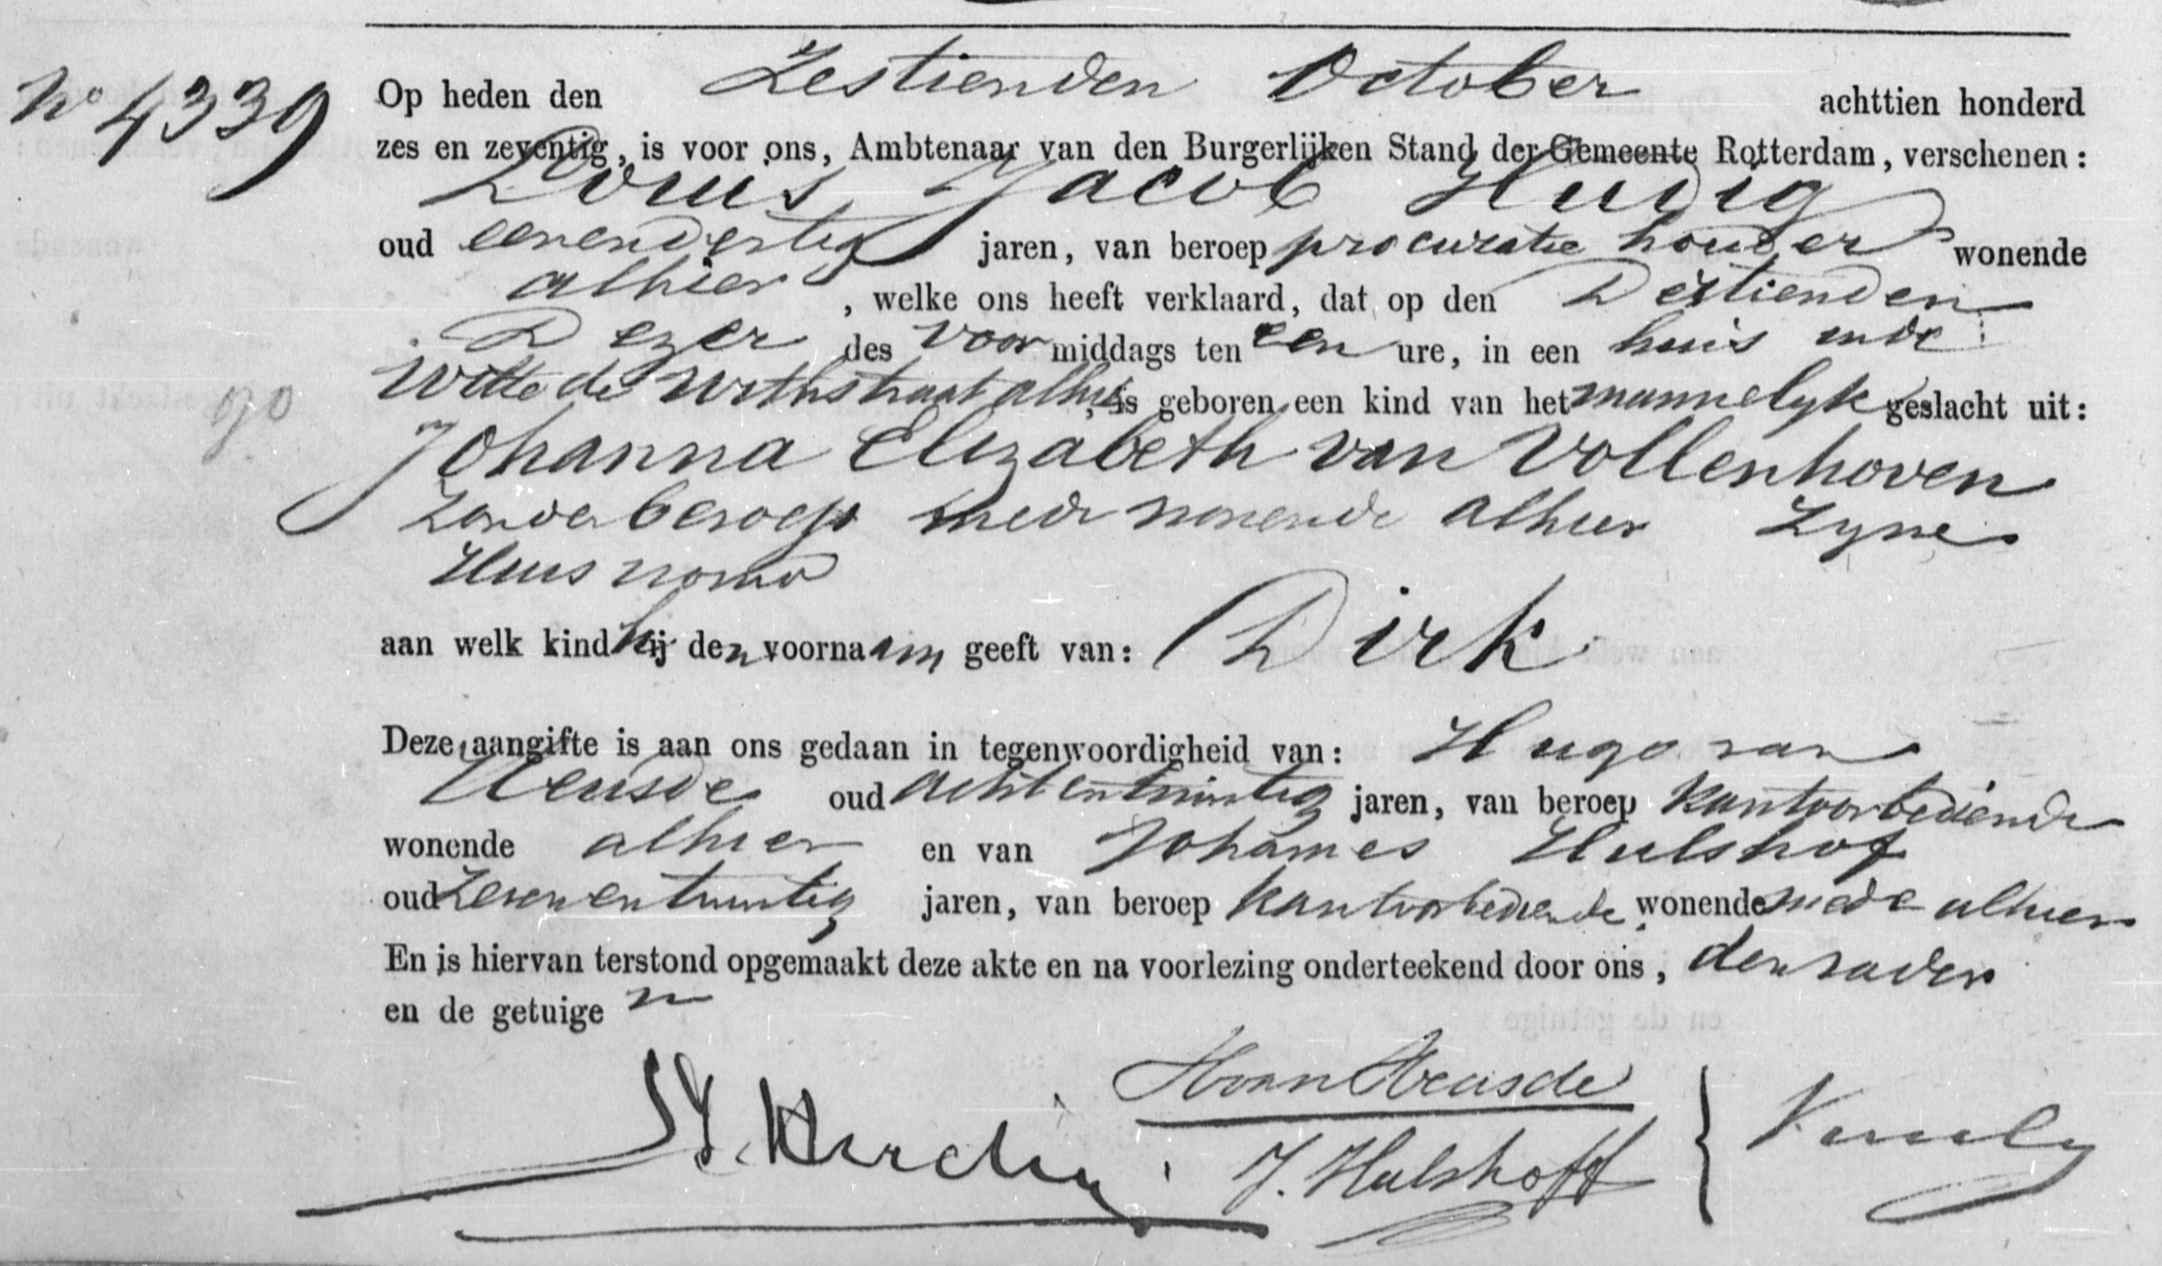 No 4339
Op heden den Zestienden October achttien honderd
zes en zeventig, is voor ons, Ambtenaar van den Burgerlijken Stand der Gemeente Rotterdam, verschenen:
Louis Jacob Hudig
oud eenendertig jaren, van beroep procuratie houder wonende
alhier, welke ons heeft verklaard, dat op den Dertienden
Dezer des voormiddags ten een ure, in een huis in de
Witte de Withstraat alhier, is geboren een kind van het mannelyk geslacht uit:
Johanna Elizabeth van Vollenhoven
zonder beroep mede wonende alhier zyne
Huisvrouw
aan welk kind hij den voornaam geeft van: Dirk
Deze aangifte is aan ons gedaan in tegenwoordigheid van: Hugo van
Heusde oud achtentwintig jaren, van beroep kantoorbediende
wonende alhier en van Johannes Hulshof
oud zevenentwintig jaren, van beroep kantoorbediende wonende mede alhier
En is hiervan terstond opgemaakt deze akte en na voorlezing onderteekend door ons, den vader
en de getuigen
HvanHeusde
LJ. Hudig
J. Hulshoff